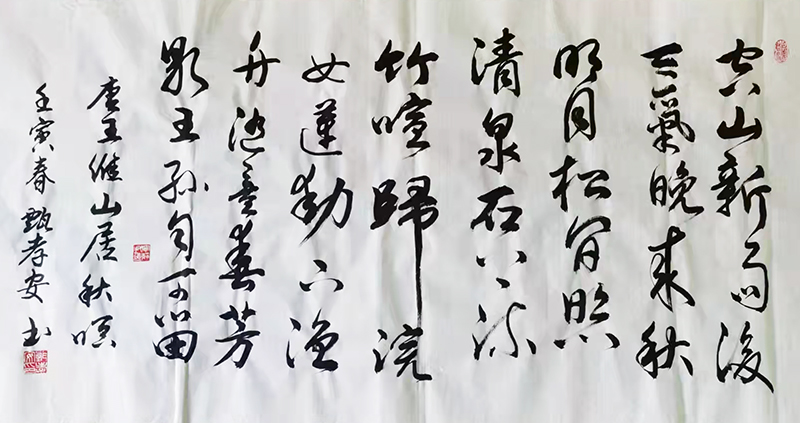 空山新雨後
天氣晚来秋
明月松间照
清泉石上流
竹喧歸浣
女蓮動下渔
舟随意春芳
歇王孙自可留
唐王维山居秋暝
壬寅春甄孝安书